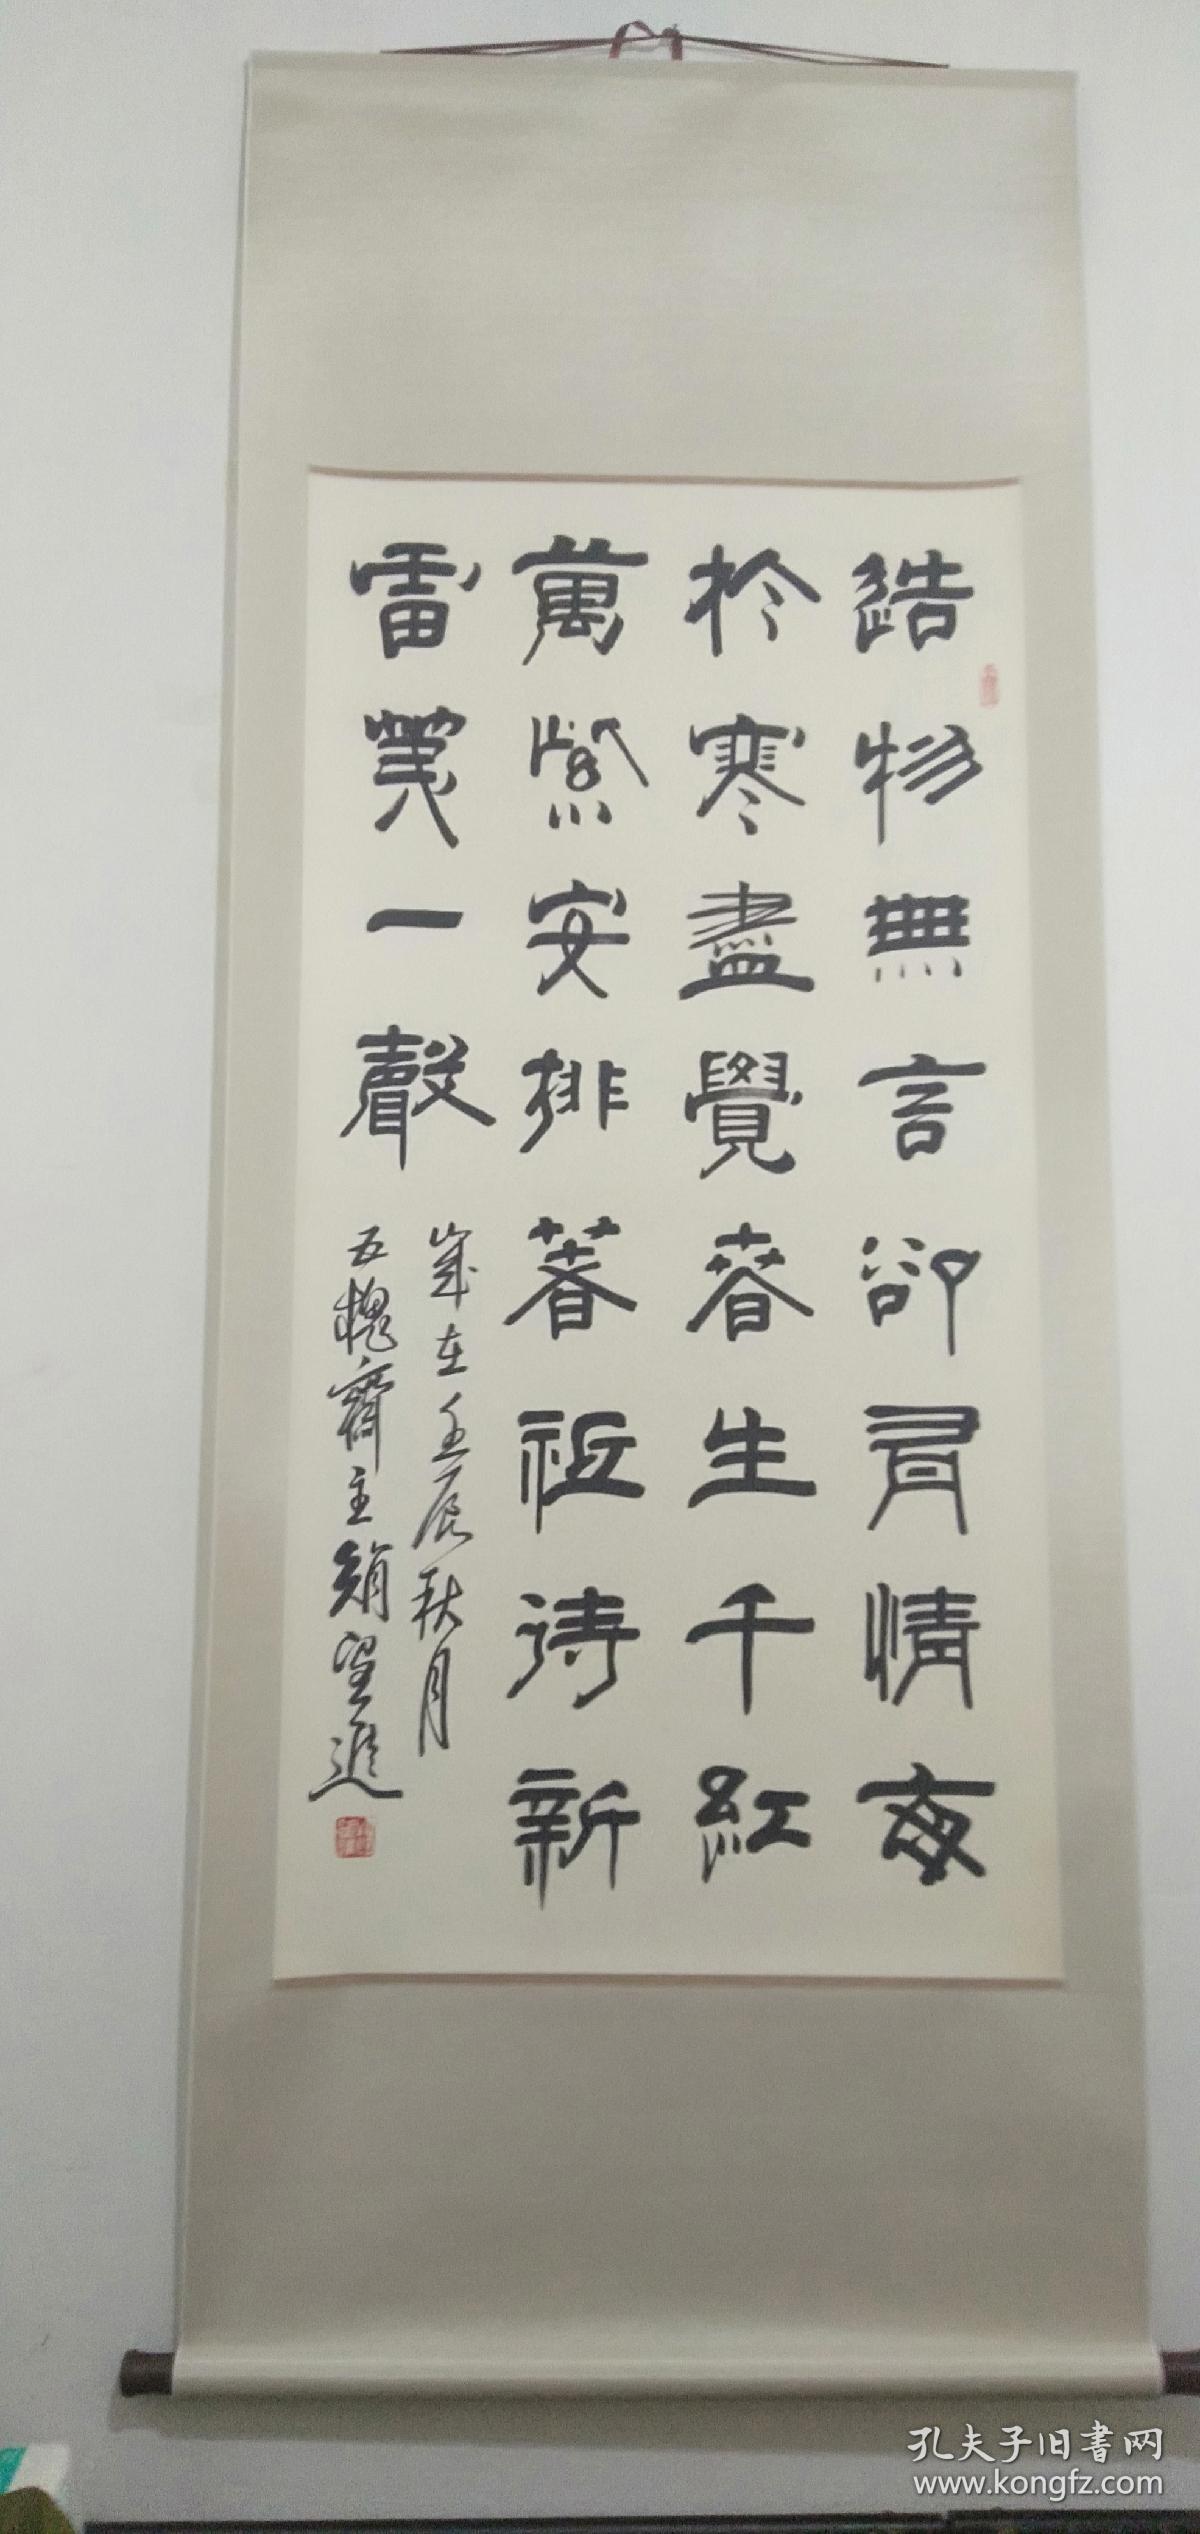 造物無言卻有情每
於寒盡覺春生千紅
萬紫安排著祗待新
雷第一聲
歲在壬辰秋月
五槐齋主趙望進
孔夫子旧書网
www.kongfz.com